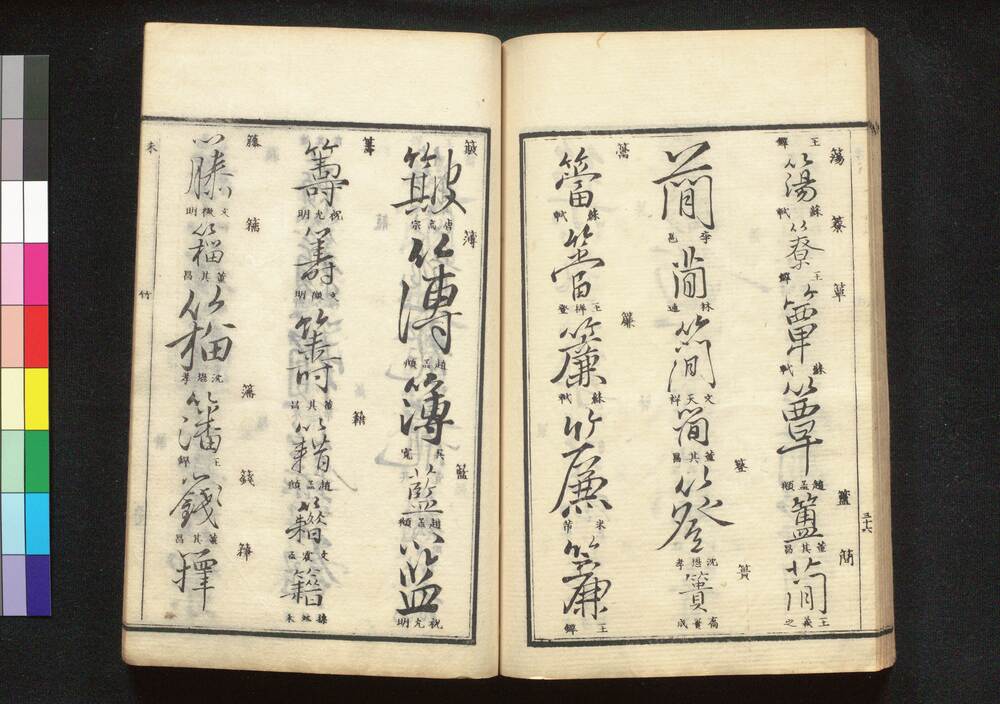 簜 簝 簞 簠 簡
王鐸 簜 蘇軾 簝 王鐸 簞 蘇軾 簞 趙孟頫 簠 董其昌 簡 王羲之
三十六
簦 簣
簡 李邕 簡 林逋 簡 文天祥 簡 董其昌 簦 簣
簹 簾
簹 蘇軾 簹 王穉登 簾 蘇軾 簾 米芾 簾 王鐸
簸 簿 籃
簸 唐高宗 簿 趙孟頫 簿 吳寬 籃 趙孟頫 籃 祝允明
籌 籍
籌 祝允明 籌 文徵明 籌 董其昌 籍 趙孟頫 籍 文震孟 籍
籐 籀 籓 籛 籜
籐 文徵明 籀 董其昌 籀 籓 王鐸 籛 董其昌 籜
未 竹